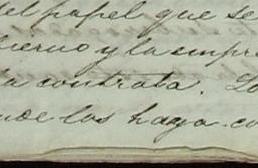 del papel que se
bierno y la empre
la contrata. Lo
nde los haga co